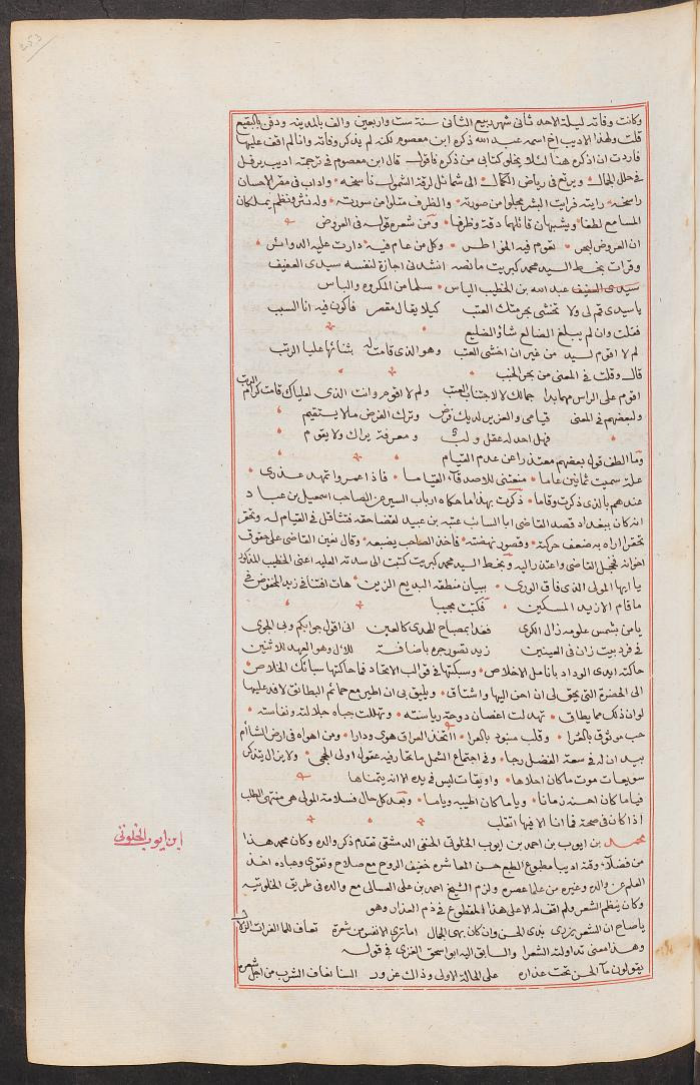 ٤٥٣
وكانت وفاته ليلة الاحد ثانى شهر ربيع الثانى سنة ست واربعين والف بالمدينه ودفن بالبقيع
قلت ولهذا الاديب اخ اسمه عبد الله ذكره ابن معصوم لكنه لم يذكر وفاته وانا لم اقف عليها
فاردت ان اذكره هنا لئلا يخلو كتابى من ذكره فاقول قال ابن معصوم فى ترجمته اديب يرفل
فى حلل الجمال ويرتع فى رياض الكمال الى شمائل لرقة الشمول ناسخه واداب فى مقر الاحسان
راسخه رايته فرايت البشر مجلوا من صورته والظرف متلوا من سورته وله نثر ونظم يملكان
المسامع لطفا ويشبهان قائلهما دقة وظرفا ومن شعره قوله فى العروض
ان العروض لبحر تعوم فيه الخواطر وكل من عام فيه دارت عليه الدوائر
وقرات بخط السيد محمد كبريت ما نصه انشدنى اجازة لنفسه سيدى العفيف
عبد الله بن الخطيب الياس سلما من المكروه والباس
يا سيدى قم لى ولا تخشى بحرمتك العتب كيلا يقال مقصر فاكون فيه انا السبب
فقلت وان لم يبلغ الضالع شاؤ الضليع
لم لا اقوم لسيد من غير ان اخشى العتب وهو الذى قامت له بثنائها عليا الرتب
قال وقلت فى المعنى من بحر الخبب
اقوم على الراس مهما بدا جمالك لا لاجتناب العتب ولم لا اقوم وانت الذى لعلياك قامت كرام الرتب
ولبعضهم فى المعنى قيامى والعزيز لديك فرض وترك الفرض ما لا يستقيم
فهل احد له عقل ولب ومعرفة يراك ولا يقوم
وما الطف قول بعضهم معتذرا عن عدم القيام
علة سميت ثمانين عاما منعتنى للاصدقاء القياما فاذا عمروا تمهد عذرى
عندهم بالذى ذكرت وقاما ذكرت بهذا ما حكاه ارباب السير عن الصاحب اسمعيل بن عباد
انه كان ببغداد قصد القاضى ابا السائب عتبه بن عبيد لقضا حقه فتثاقل فى القيام له وتحفز
تحفزا اراه به ضعف حركته وقصور نهضته فاخذ الصاحب بضبعه وقال نعين القاضى على حقوق
اخوانه فخجل القاضى واعتذر اليه وبخط السيد محمد كبريت كتبت الى سدته العليه اعنى الخطيب المذكور
يا ايها المولى الذى فاق الورى ببيان منطقه البديع الزين هات افتنا فى زيد المخفوض فى
ما قام الا زيد المسكين فكتبت مجيبا
يا من بشمس علومه زال الكرى فغدا بمصباح الهدى كالعين انى اقول جوابكم وبى الجوى
فى فرد بيت زان فى العينين زيد تصور جره باضافة للال وهو العهد للاثنين
حاكته ايدى الوداد بانامل الاخلاص وسبكتها فى قوالب الاتحاد فما حاكتها سبائك الخلاص
الى الحضرة التى يحق لى ان احن اليها واشتاق ويليق بى ان اطير مع حمائم البطائق لافد عليها
لو ان ذلك مما يطاق تهدلت اغصان دوحة رياسته وتهللت جباه جلالته ونفاسته
حب موثوق بالعرا وقلب منبوذ بالعرا اتخذ العراق هوى ودارا ومن اهواه فى ارض الشام
بيد ان له فى سعة الفضل رجا وفى اجتماع الشمل ما تحار فيه عقول اولى الحجى ولا يزال يتذكر
سويعات موت ما كان احلاها واويقات ليس فى يده الا انه يتمناها
فيا ما كان احسنه زمانا ويا ما كان اطيبه وياما وبعد كل حال فسلامة المولى هى منتهى الطلب
اذا كان فى صحة فما انا الا فيها انقلب
محمد بن ايوب بن احمد بن ايوب الخلوتى الحنفى الدمشقى تقدم ذكر والده وكان محمد هذا
من فضلاء وقته اديبا مطبوع الطبع حسن المعاشره خفيف الروح مع صلاح وتقوى وعباده اخذ
العلم عن والده وغيره من علما عصره ولزم الشيخ احمد بن على العسالى مع والده فى طريق الخلوتيه
وكان ينظم الشعر ولم اقف له الا على هذا المقطوع فى ذم العذار وهو
يا صاح ان الشعر يزرى بذى الحسن وان كان بهى الجمال اما ترى الانفس من شعرة تعاف للماء الفرات الزلال
وهذا معنى تداولته الشعرا والسابق اليه ابو اسحق الغزى فى قوله
يقولون ماء الحسن تحت عذاره على الحالة الاولى وذاك غرور السنا نعاف الشرب من اجل شعره
ابن ايوب الخلوتى